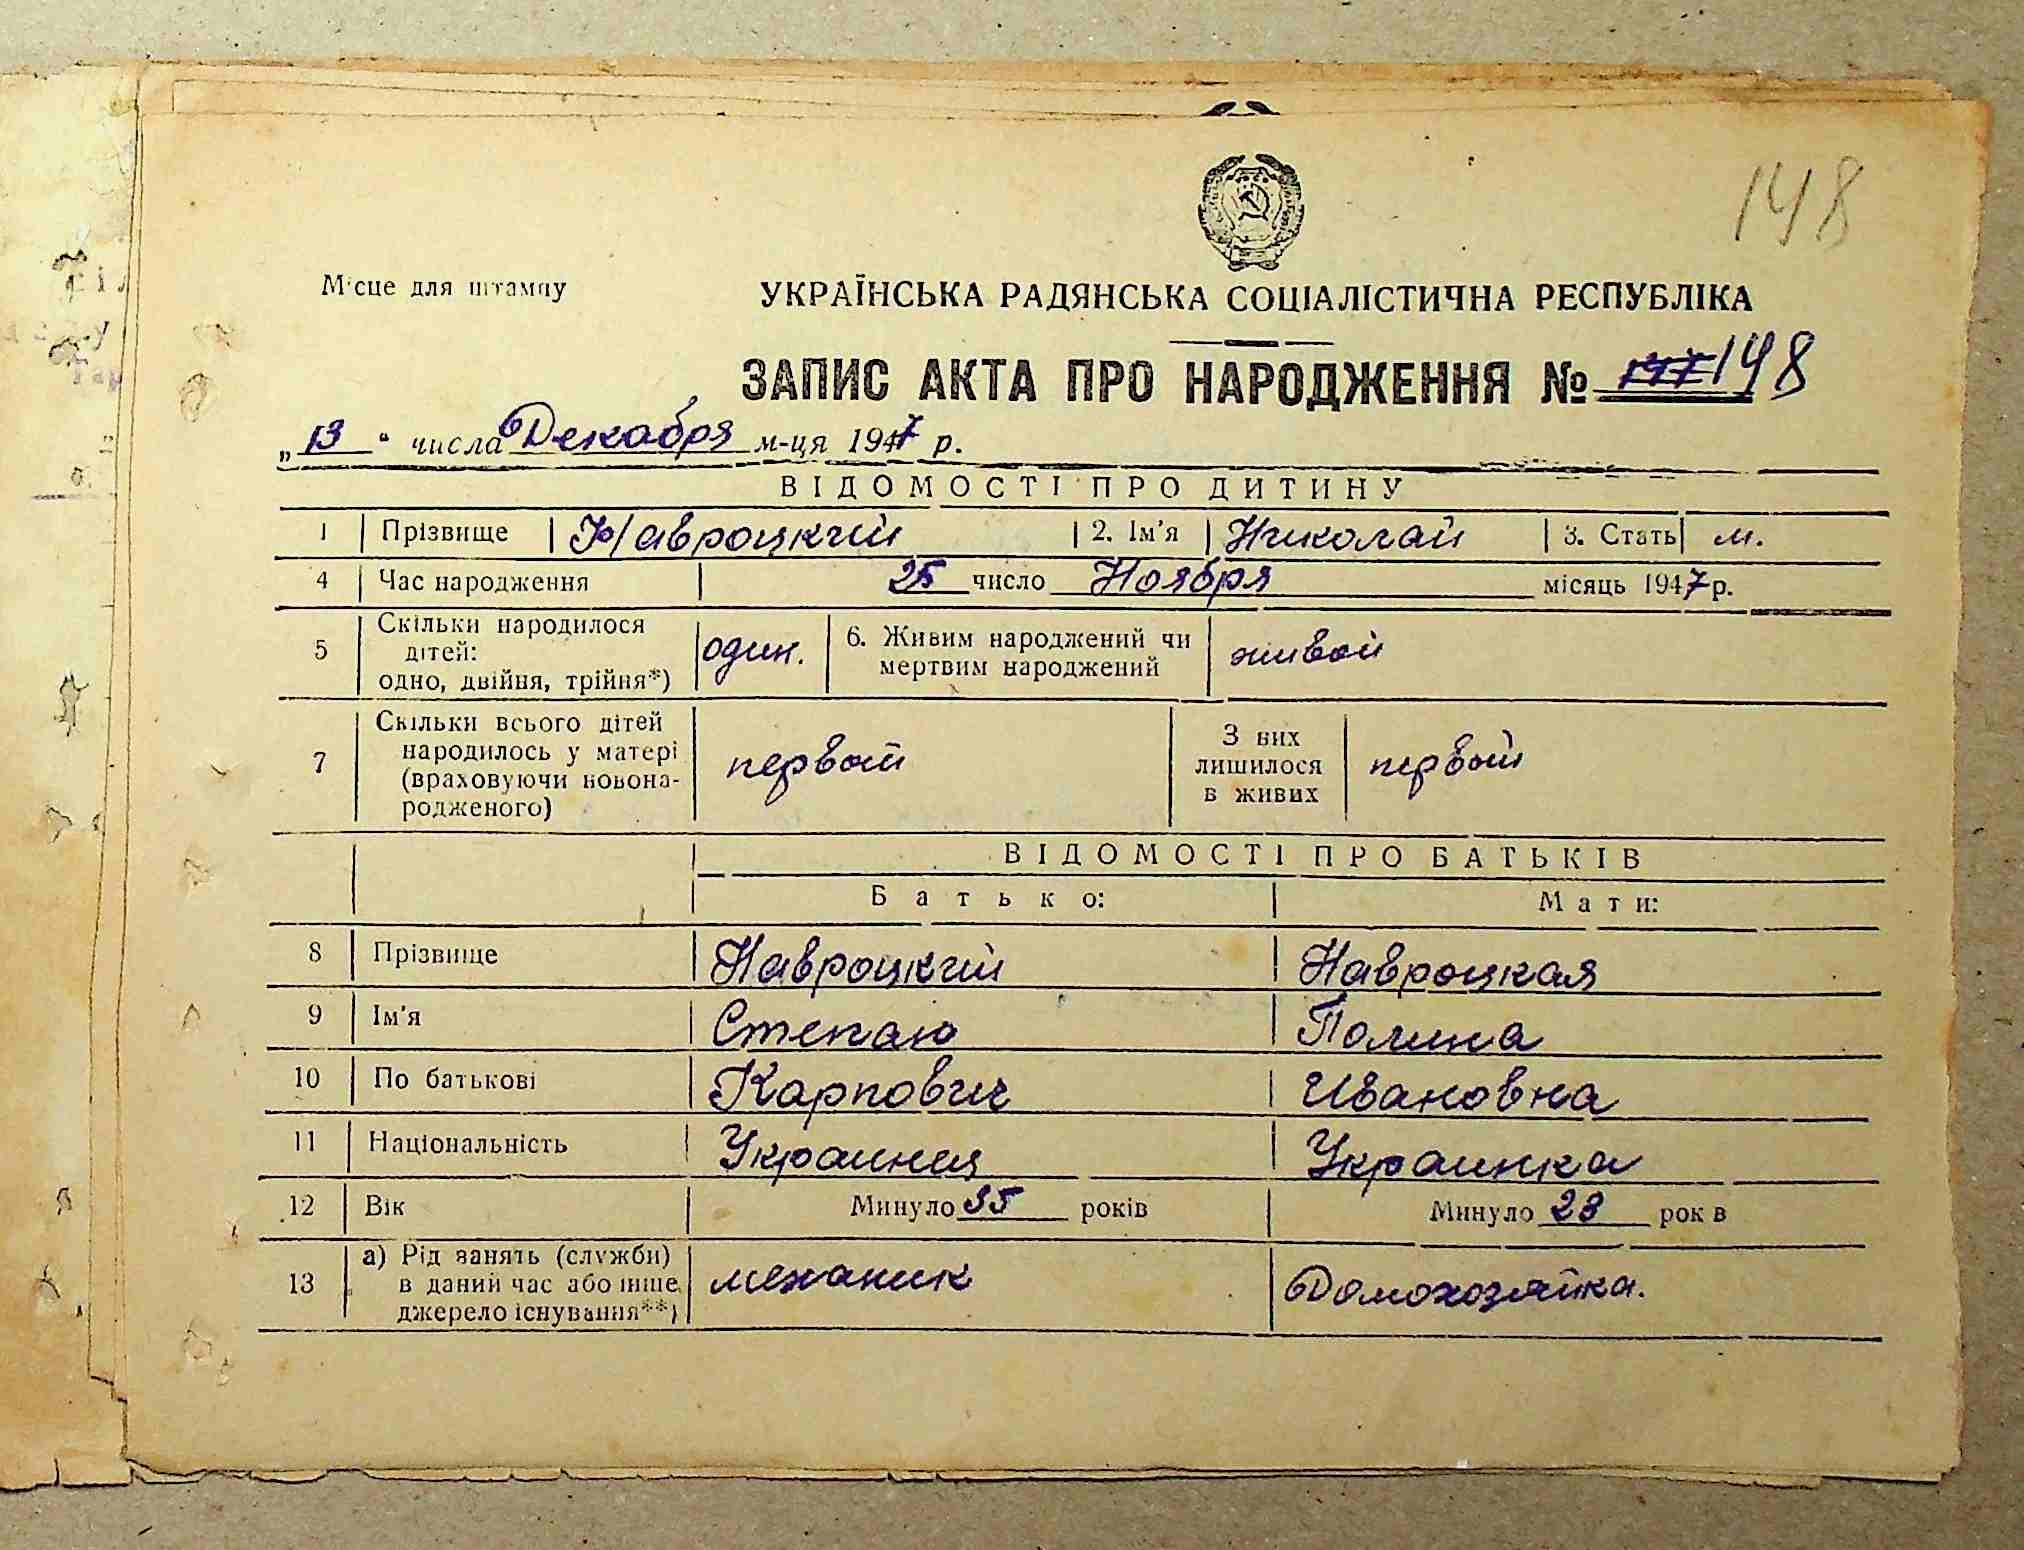 148
Місце для штампу
УКРАЇНСЬКА РАДЯНСЬКА СОЦІАЛІСТИЧНА РЕСПУБЛІКА
ЗАПИС АКТА ПРО НАРОДЖЕННЯ № 147 148
„13“ числа Декабря м-ця 1947 р.
ВІДОМОСТІ ПРО ДИТИНУ
1 Прізвище Навроцкий 2. Ім'я Николай 3. Стать м.
4 Час народження 25 число Ноября місяць 1947 р.
5 Скільки народилося дітей: одно, двійня, трійня*) один. 6. Живим народжений чи мертвим народжений живой
7 Скільки всього дітей народилось у матері (враховуючи новонародженого) первый З них лишилося в живих первый
ВІДОМОСТІ ПРО БАТЬКІВ
Батько: Мати:
8 Прізвище Навроцкий Навроцкая
9 Ім'я Степан Полина
10 По батькові Карпович Ивановна
11 Національність Украинец Украинка
12 Вік Минуло 35 років Минуло 23 рок в
13 а) Рід занять (служби) в даний час або інше джерело існування**) механик Домохозяйка.